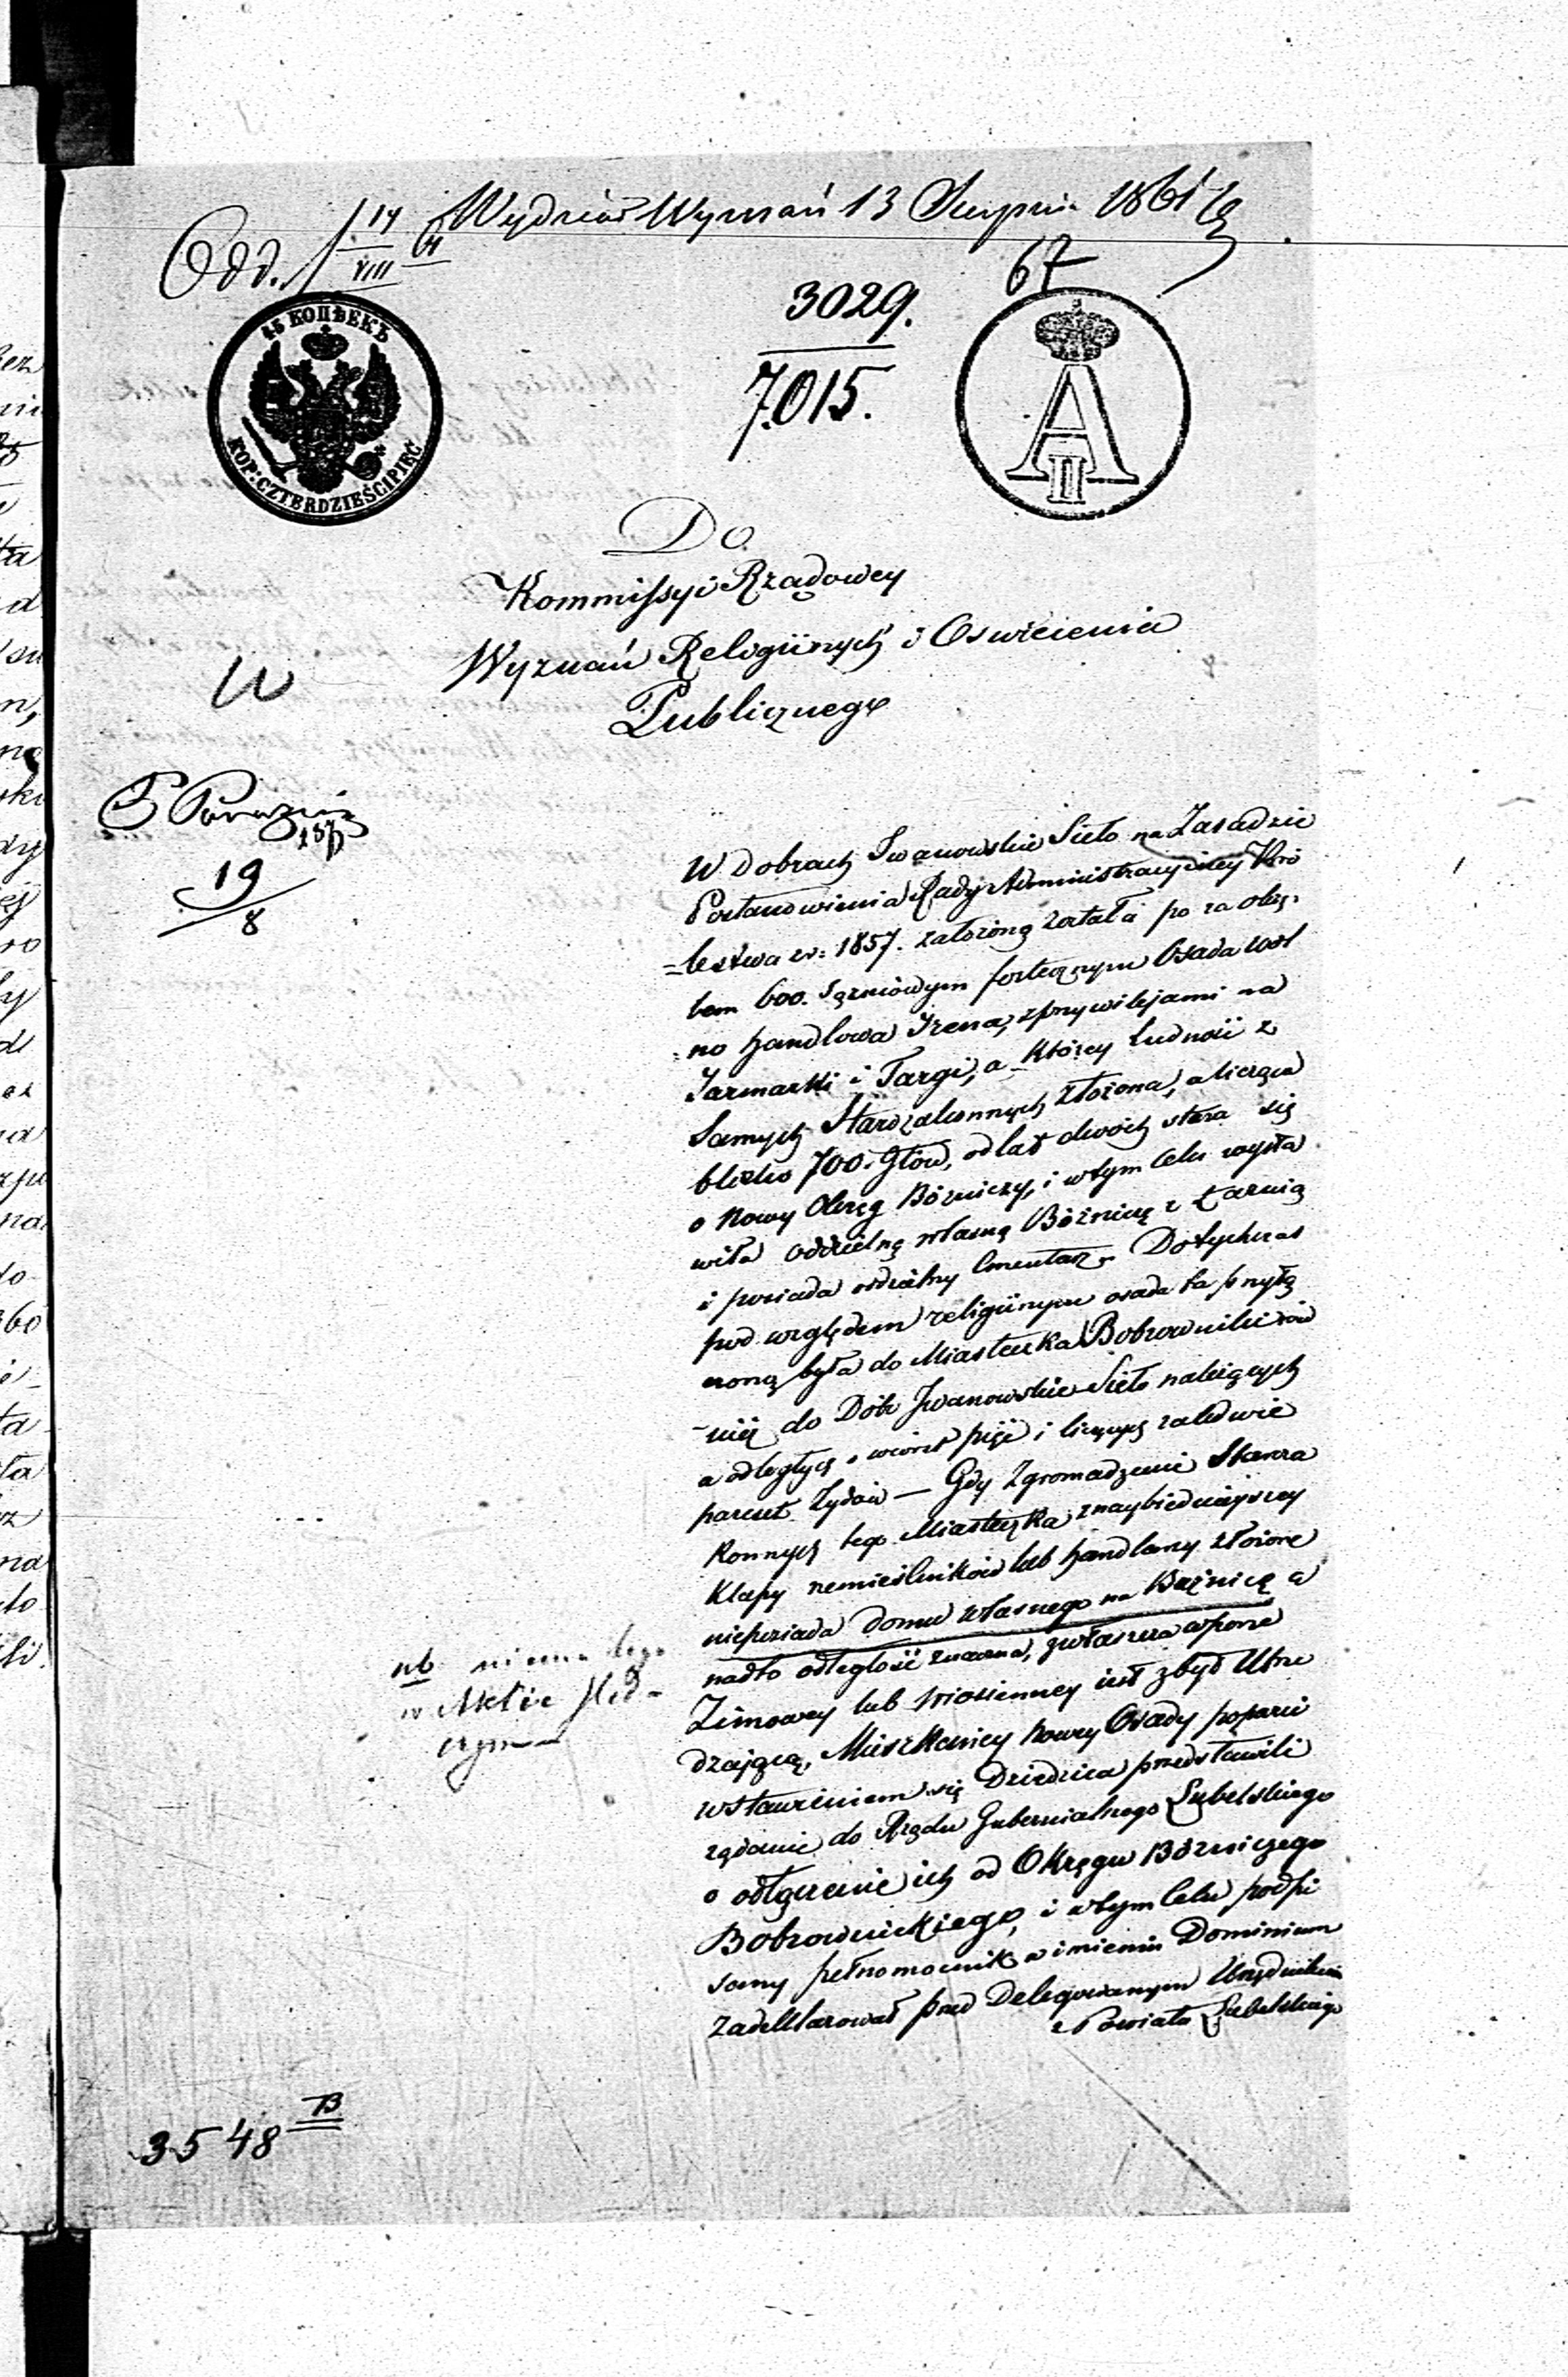 Wydział Wyznań 13 Sierpnia 1861
Odd. 14
VIII 61
67
3029.
7.015.
45 КОПѢЕКЪ
KOP: CZTERDZIEŚCI PIĘĆ
A II
Do
Kommissyi Rządowey
Wyznań Religiinych i Oswiecenia
Publicznego
19
8
W Dobrach Iwanowskie Sioło na Zasadzie
Postanowienia Rady Administracyiney Kró
=lestwa z r: 1857. założoną została po za obrę-
bem 600. sążniowym fortecznym Osada rol
-no handlowa Irena, z przywilejami na
Jarmarki i Targi, a którey Ludność z
Samych Starozakonnych złożona, a licząca
blisko 700. Głów, od lat dwóch stara się
o Nowy Okręg Bóżniczy, i w tym Celu wysta
wiła oddzielną własną Bóżnicę z Łaznią
i posiada oddzielny Cmentarz. Dotychczas
pod względem religiinym osada ta przyłą
czoną była do Miasteczka Bobrownik rów
-nież do Dóbr Iwanowskie Sioło należących
a odległych o wiorst pięć i liczących zaledwie
pareset Żydów — Gdy Zgromadzenie Staroza
konnych tego Miasteczka z naybiednieyszey
Klassy rzemieślników lub handlarzy złożone
nieposiada domu własnego na Bóżnicę a
nadto odległość znaczna, zwłaszcza w porze
Zimowey lub wiosienney jest zbyt Utru
dzającą, Mieszkańcy nowey Osady poparci
wstawieniem się Dziedzica przedstawili
żądanie do Rządu Gubernialnego Lubelskiego
o odłączenie ich od Okręgu Bózniczego
Bobrownickiego, i w tym Celu podpi
sany pełnomocnik w imieniu Dominium
zadeklarował przed Delegowanym Urzędnikiem
z Powiatu Lubelskiego
nb niema tego
w Akcie
3548 B